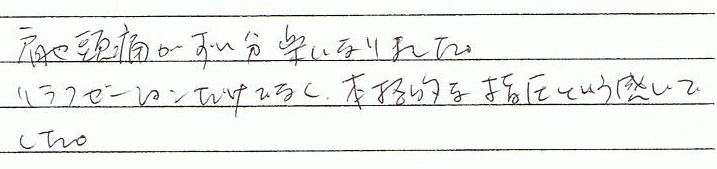 肩や頭痛がずい分楽になりました。
リラクゼーションだけでなく、本格的な指圧という感じで
した。